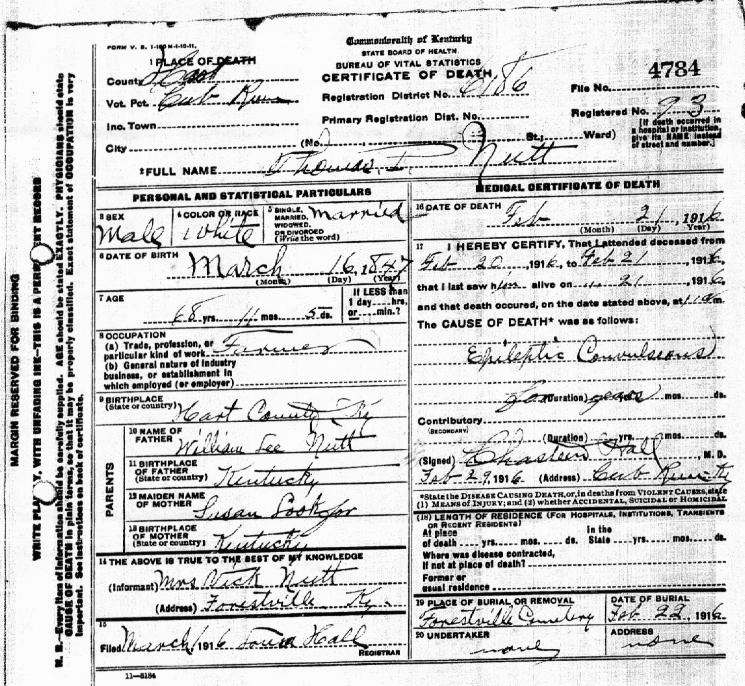 FORM V. S. 1-
Commonwealth of Kentucky
STATE BOARD OF HEALTH.
BUREAU OF VITAL STATISTICS
CERTIFICATE OF DEATH
1 PLACE OF DEATH
County Hart
Vot. Pct. Cub Run
Inc. Town
City
(No.
St.; Ward)
Registration District No. 6186
Primary Registration Dist. No.
File No. 4784
Registered No. 93
[If death occurred in
a hospital or institution,
give its NAME instead
of street and number.]
2 FULL NAME Thomas Nutt
PERSONAL AND STATISTICAL PARTICULARS
3 SEX
Male
4 COLOR OR RACE
White
5 SINGLE,
MARRIED,
WIDOWED,
OR DIVORCED
(Write the word)
Married
6 DATE OF BIRTH
March 16, 1847
(Month) (Day) (Year)
7 AGE
68 yrs. 11 mos. 5 ds.
If LESS than
1 day----hrs.
or----min.?
8 OCCUPATION
(a) Trade, profession, or
particular kind of work Farmer
(b) General nature of industry
business, or establishment in
which employed (or employer)
9 BIRTHPLACE
(State or country) Hart County Ky
PARENTS
10 NAME OF
FATHER William Lee Nutt
11 BIRTHPLACE
OF FATHER
(State or country) Kentucky
12 MAIDEN NAME
OF MOTHER Susan
13 BIRTHPLACE
OF MOTHER
(State or country) Kentucky
14 THE ABOVE IS TRUE TO THE BEST OF MY KNOWLEDGE
(Informant) Mrs Vick Nutt
(Address) Forestville Ky.
15
Filed March 1 1916 Hall
REGISTRAR
11-5184
MEDICAL CERTIFICATE OF DEATH
16 DATE OF DEATH
Feb 21, 1916
(Month) (Day) (Year)
17 I HEREBY CERTIFY, That I attended deceased from
Feb 20, 1916, to Feb 21 1916
that I last saw him alive on " 21, 1916
and that death occured, on the date stated above, at m.
The CAUSE OF DEATH* was as follows:
Epileptic Convulsions
(Duration) years mos. ds.
Contributory
(SECONDARY)
(Duration) yrs. mos. ds.
(Signed) Chasteen Hall, M. D.
Feb 29, 1916 (Address) Cub Run Ky
*State the DISEASE CAUSING DEATH, or, in deaths from VIOLENT CAUSES, state
(1) MEANS OF INJURY; and (2) whether ACCIDENTAL, SUICIDAL or HOMICIDAL
(18) LENGTH OF RESIDENCE (FOR HOSPITALS, INSTITUTIONS, TRANSIENTS
OR RECENT RESIDENTS)
At place
of death yrs. mos. ds.
In the
State yrs. mos. ds.
Where was disease contracted,
If not at place of death?
Former or
usual residence
19 PLACE OF BURIAL OR REMOVAL
Forestville Cemetery
DATE OF BURIAL
Feb 22 1916
20 UNDERTAKER
none
ADDRESS
none
MARGIN RESERVED FOR BINDING
WRITE PLAINLY, WITH UNFADING INK—THIS IS A PERMANENT RECORD
N. B.—Every item of information should be carefully supplied. AGE should be stated EXACTLY. PHYSICIANS should state
CAUSE OF DEATH in plain terms, so that it may be properly classified. Exact statement of OCCUPATION is very
important. See instructions on back of certificate.